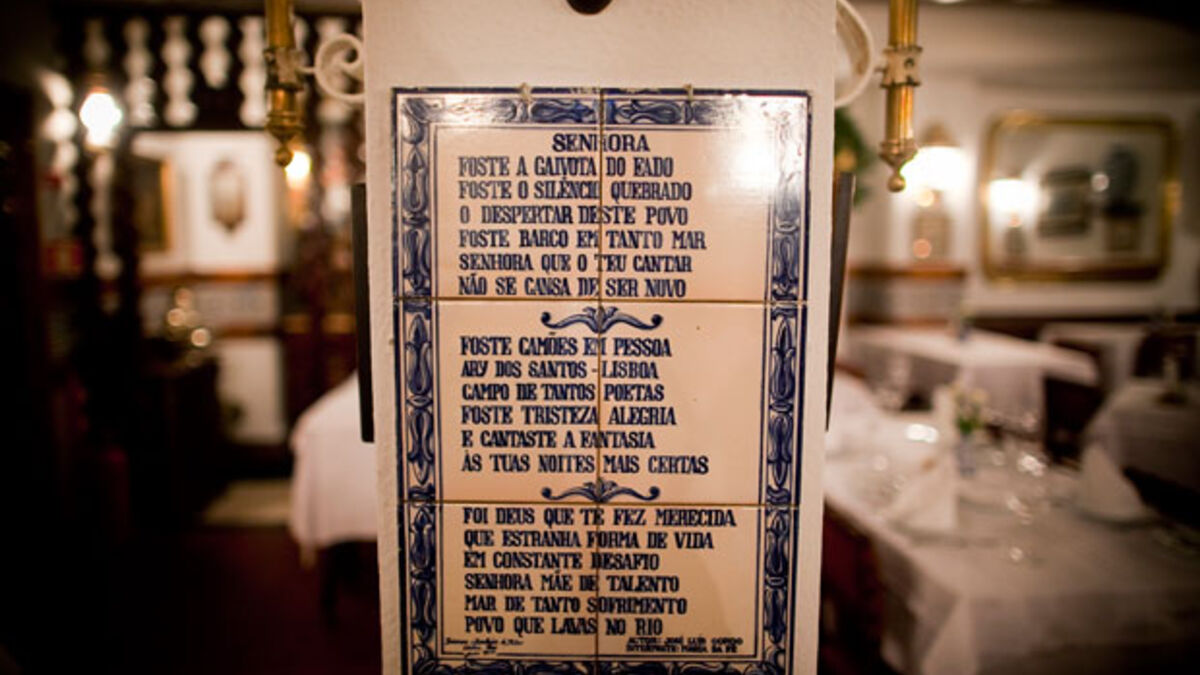 SENHORA
FOSTE A GAIVOTA DO FADO
FOSTE O SILÊNCIO QUEBRADO
O DESPERTAR DESTE POVO
FOSTE BARCO EM TANTO MAR
SENHORA QUE O TEU CANTAR
NÃO SE CANSA DE SER NOVO
FOSTE CAMÕES EM PESSOA
ARY DOS SANTOS - LISBOA
CAMPO DE TANTOS POETAS
FOSTE TRISTEZA ALEGRIA
E CANTASTE A FANTASIA
ÀS TUAS NOITES MAIS CERTAS
FOI DEUS QUE TE FEZ MERECIDA
QUE ESTRANHA FORMA DE VIDA
EM CONSTANTE DESAFIO
SENHORA MÃE DE TALENTO
MAR DE TANTO SOFRIMENTO
POVO QUE LAVAS NO RIO
AUTOR: JOSÉ LUÍS GORDO
INTERPRETE: MARIA DA FÉ